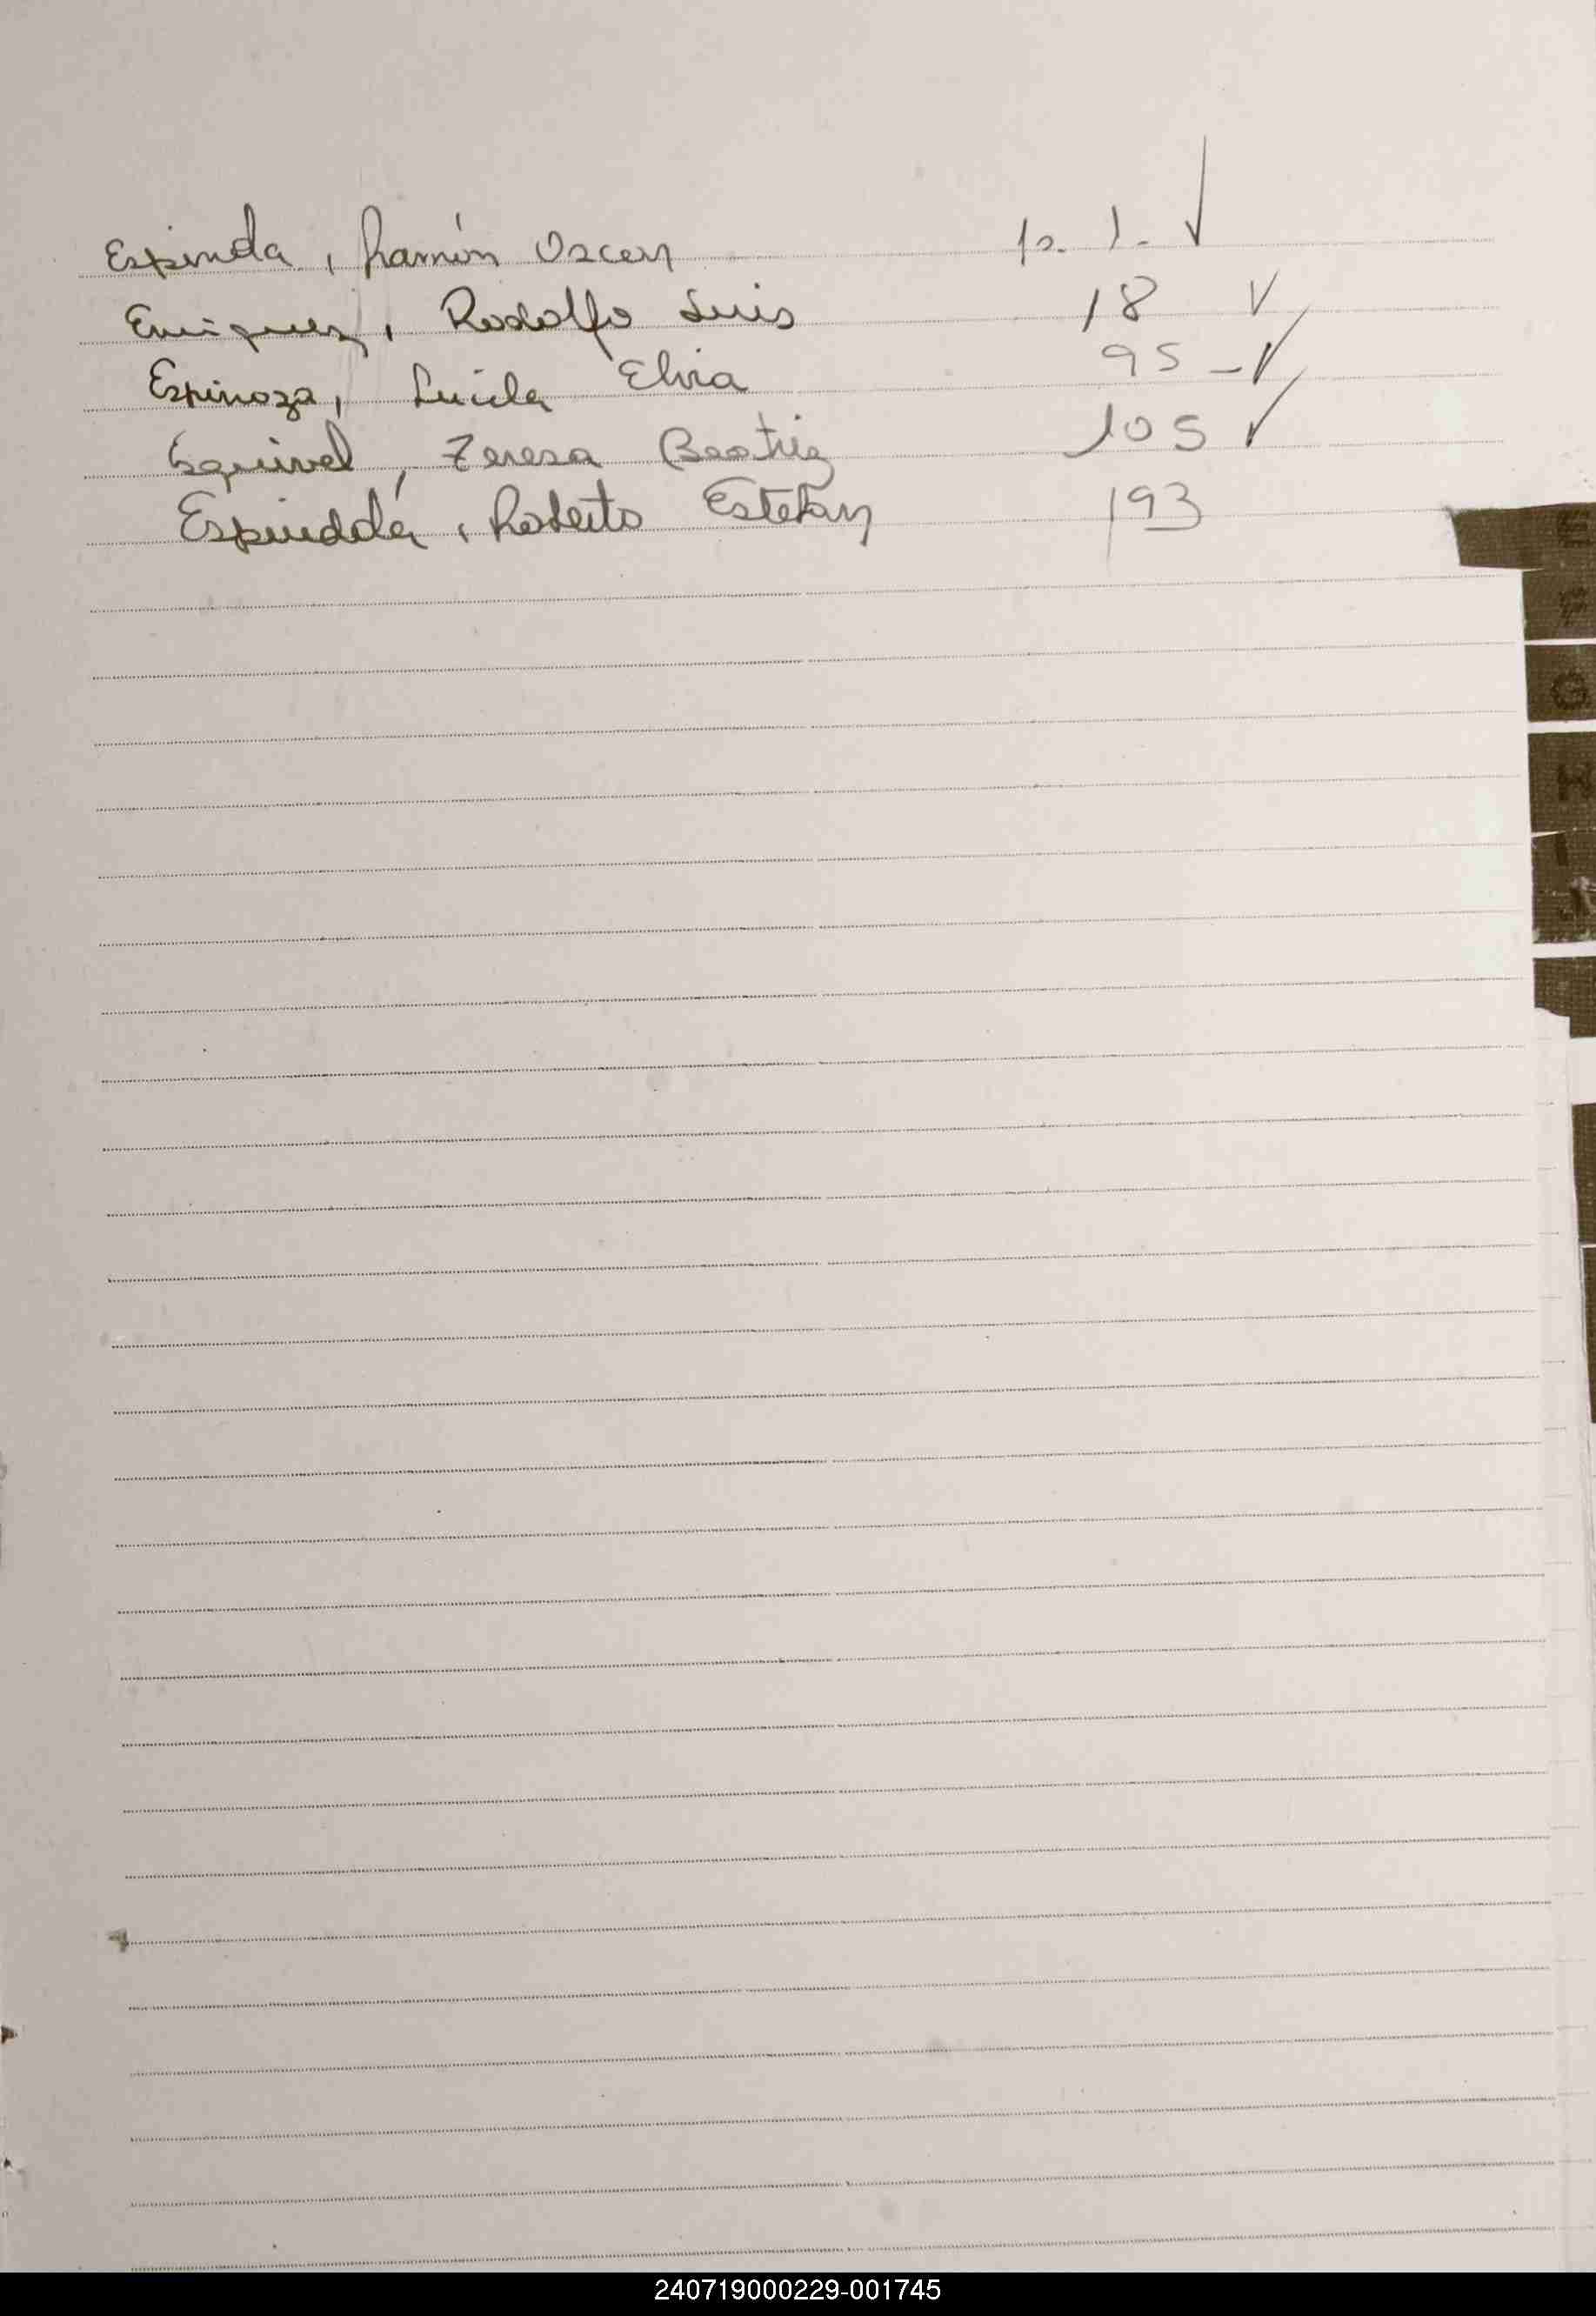 Espinda, Ramón Oscar 1. ✓
Enriquez, Rodolfo Luis 18 ✓
Espinoza, Lucila Elvia 95 - ✓
Esquivel, Teresa Beatriz 105 ✓
Espindola, Roberto Esteban 193
E
F
G
H
I
J
240719000229-001745